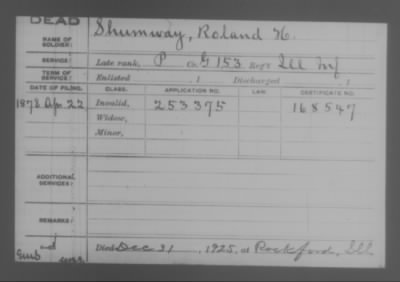 DEAD
NAME OF SOLDIER: Shumway, Roland H.
SERVICE: Late rank, P Co. G 153 Reg't Ill Inf
TERM OF SERVICE: Enlisted , 1 Discharged , 1
DATE OF FILING. CLASS. APPLICATION NO. LAW. CERTIFICATE NO.
1878 Apr 22 Invalid, 253375 168547
Widow,
Minor,
ADDITIONAL SERVICES:
REMARKS:
Died Dec 31, 1925, at Rockford, Ill